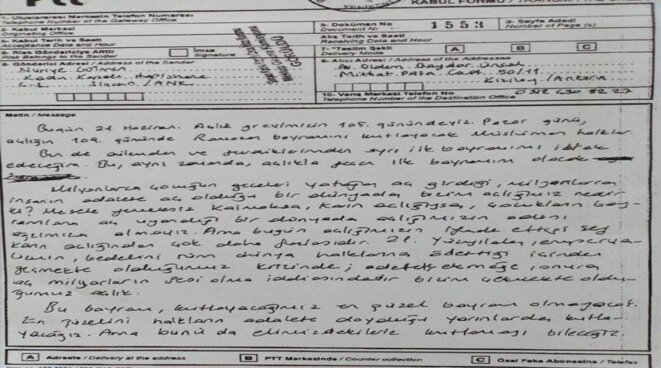 PTT
KABUL FORMU /
1- Uluslararası Merkezin Telefon Numarası
Telephone Number of the Gateway Office
2- Kabul Merkezi
Originating Office
3- Doküman No 1553
Document Nr
3- Sayfa Adedi
Number of Page (s)
4- Kabul Tarih ve Saati
Acceptance Date and Hour
Alış Tarih ve Saati
Receiving Date and Hour
5- Risk Göndericiye Aittir
Risk Belongs to the Sender
İmza
Signature
7- Teslim Şekli
Delivery Mode
A B C
6- Gönderici Adresi / Address of the Sender
Nuriye Gülmen
Kadın Kapalı Hapishane
Sincan / ANK
9- Alıcı Adresi / Address of the Addressee
Mithat Paşa Cad. 50/11
Kızılay / Ankara
10- Varış Merkezi Telefon No
Telephone Number of the Destination Office
Metin / Message
Bugün 21 Haziran. Açlık grevimizin 105. günündeyiz. Pazar günü,
açlığın 109. gününde Ramazan bayramını kutlayacak Müslüman halklar.
Ben de ailemden ve sevdiklerimden ayrı ilk bayramımı
edeceğim. Bu, aynı zamanda, açlıkla geçen ilk bayramım olacak
Milyonlarca çocuğun geceleri yatağına aç girdiği, milyonlarca
insanın adalete aç olduğu bir dünyada bizim açlığımız nedir
ki? Mesele yemekse, karın açlığıysa, çocukların bay-
ramlara aç uyandığı bir dünyada açlığımızın adını
ağzımıza almayız. Ama bugün açlığımızın ifade ettiği şey
karın açlığından çok daha fazlasıdır. 21. Yüzyılda, emperya-
lizmin, bedelini tüm dünya halklarına ödettiği
geçmekte olduğumuz krizinde; adalete, ekmeğe, onura
aç milyarların sesi olma iddiasındadır bizim çekmekte oldu-
ğumuz açlık.
Bu bayram, kutlayacağımız en güzel bayram olmayacak.
En güzelini halkların adalete doyduğu yarınlarda kutla-
yacağız. Ama bunu da elimizdekilerle kutlamayı bileceğiz.
A Adreste / Delivery at the address
B PTT Merkezinde / Counter collection
C Özel Faks Abonesine / Telefax